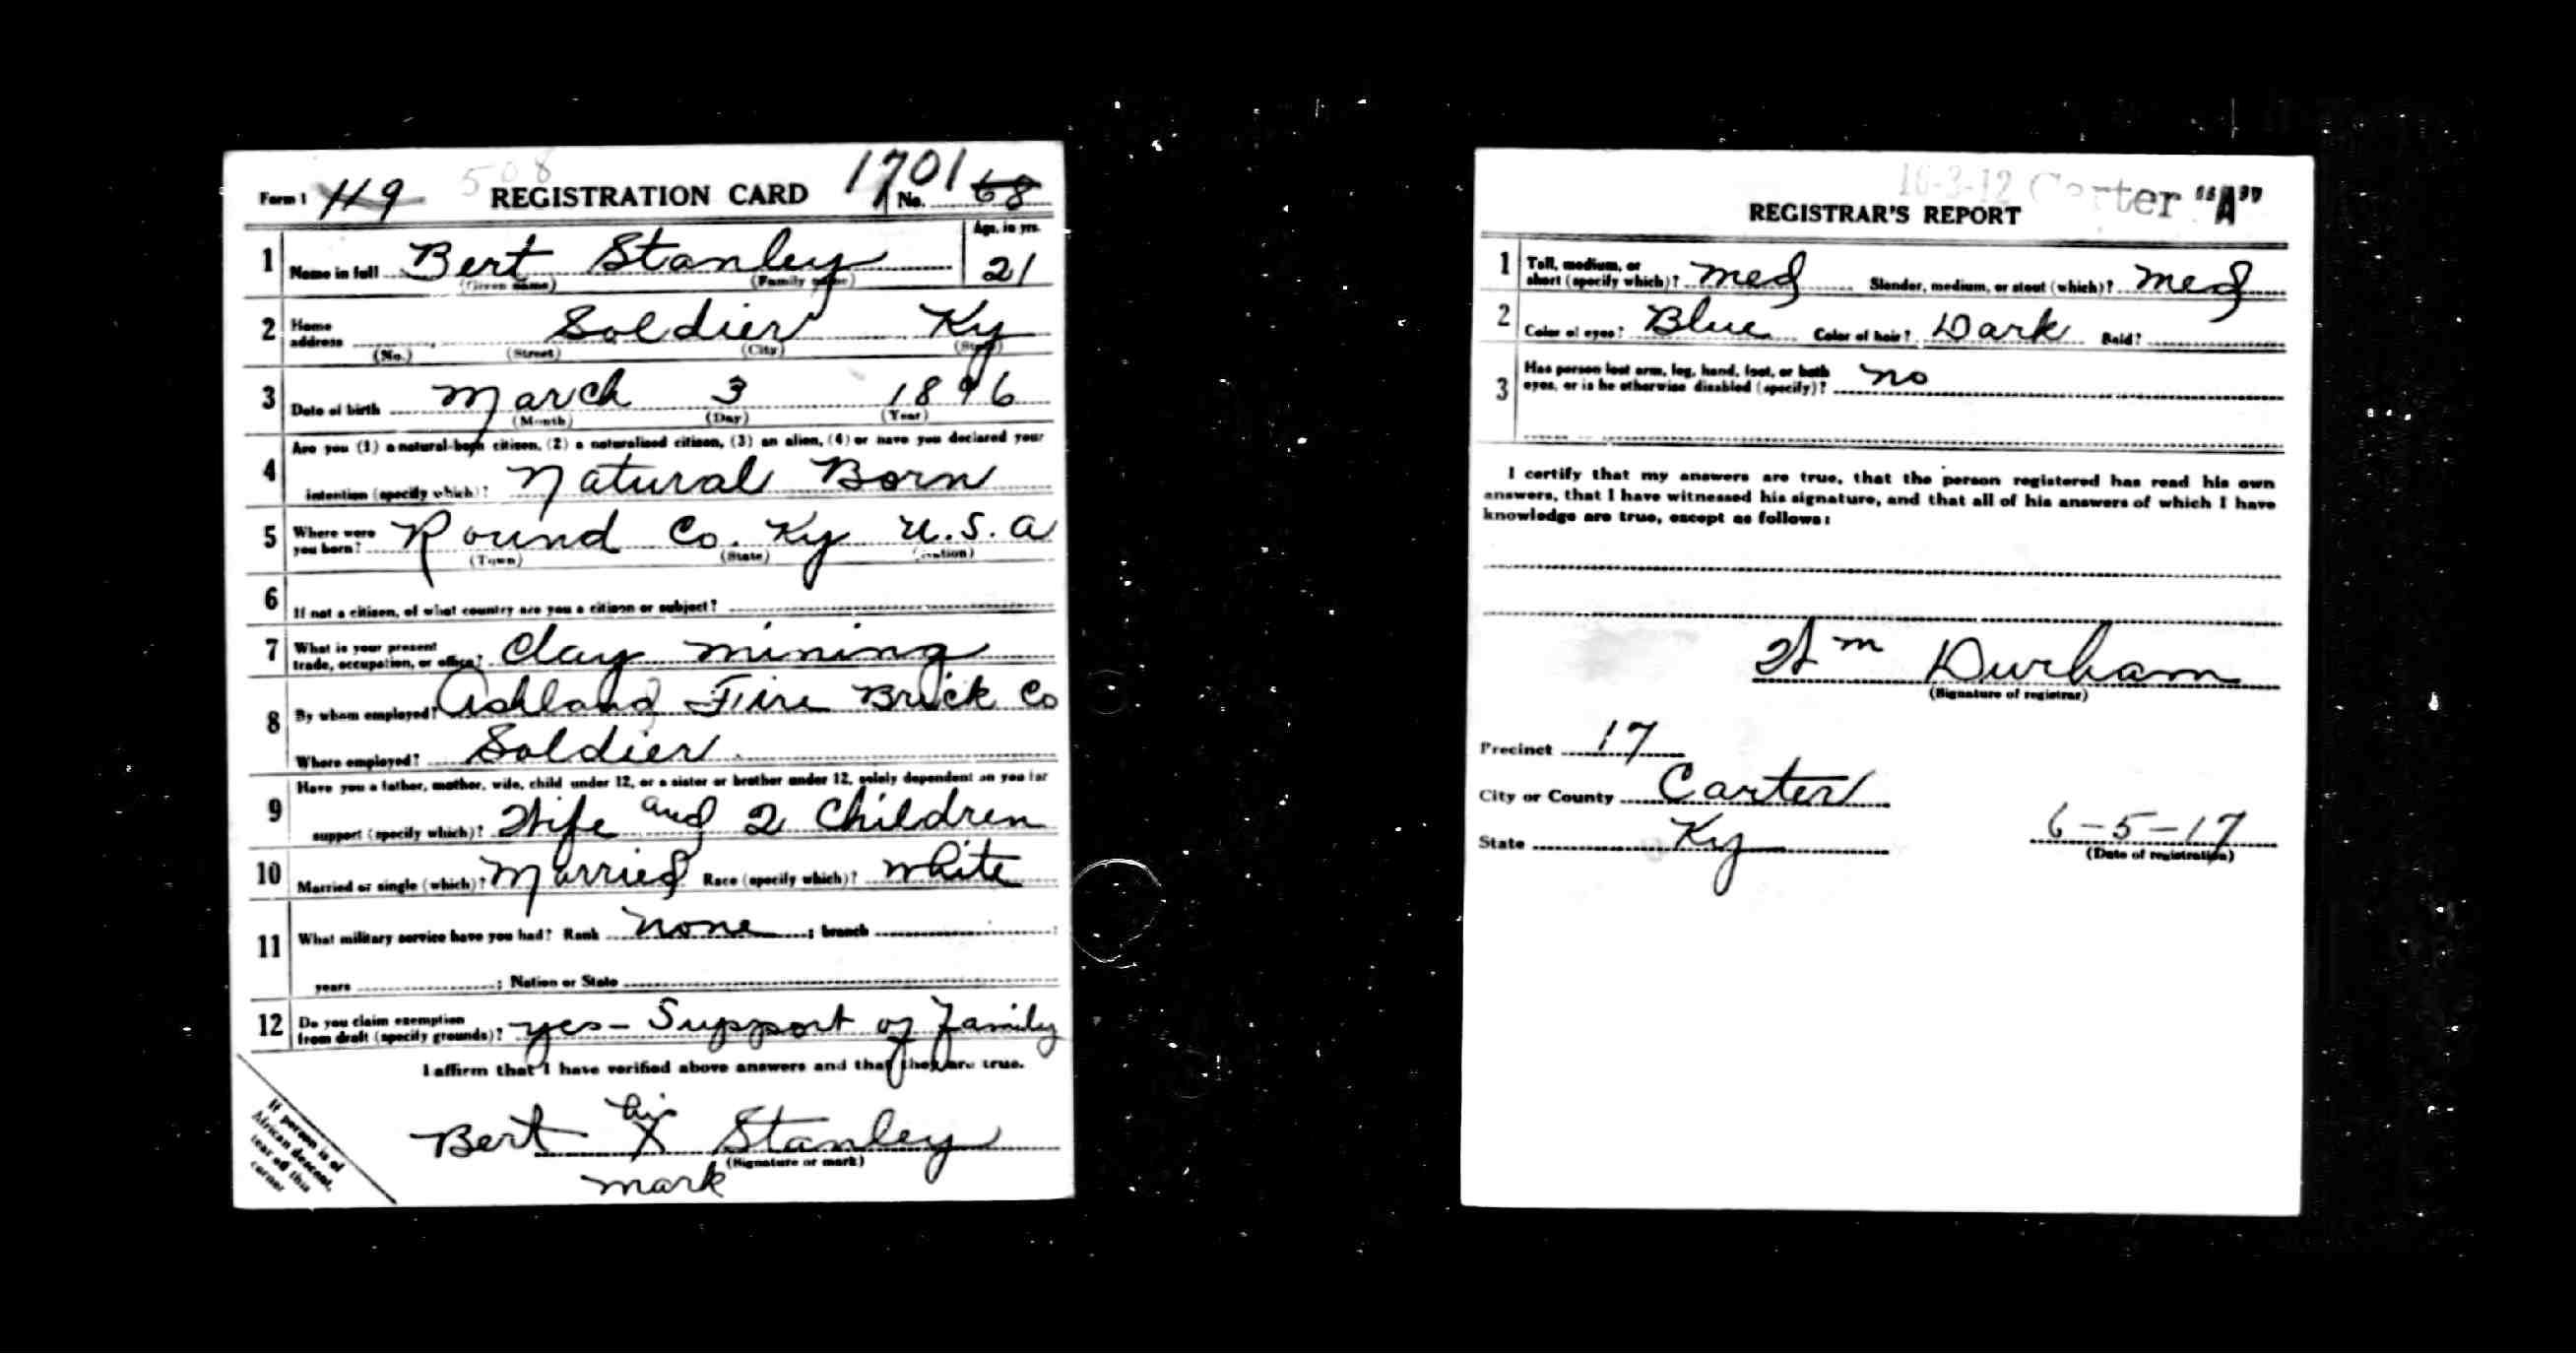 Form 1 119 508 REGISTRATION CARD 1701 No. 68
1 Name in full Bert Stanley Age, in yrs. 21
(Given name) (Family name)
2 Home address Soldier Ky
(No.) (Street) (City) (State)
3 Date of birth March 3 1896
(Month) (Day) (Year)
Are you (1) a natural-born citizen, (2) a naturalized citizen, (3) an alien, (4) or have you declared your
4 intention (specify which)? Natural Born
5 Where were you born? Round Co. Ky U.S.A
(Town) (State) (Nation)
6 If not a citizen, of what country are you a citizen or subject?
7 What is your present trade, occupation, or office? Clay mining
8 By whom employed? Ashland Fire Brick Co
Where employed? Soldier
Have you a father, mother, wife, child under 12, or a sister or brother under 12, solely dependent on you for
9 support (specify which)? Wife and 2 Children
10 Married or single (which)? Married Race (specify which)? White
11 What military service have you had? Rank none ; branch
years ; Nation or State
12 Do you claim exemption from draft (specify grounds)? yes - Support of Family
I affirm that I have verified above answers and that they are true.
his
Bert X Stanley
(Signature or mark)
mark
If person is of
African descent,
tear off this
corner
16-3-12 Carter "A"
REGISTRAR'S REPORT
1 Tall, medium, or short (specify which)? Med Slender, medium, or stout (which)? Med
2 Color of eyes? Blue Color of hair? Dark Bald?
3 Has person lost arm, leg, hand, foot, or both
eyes, or is he otherwise disabled (specify)? no
I certify that my answers are true, that the person registered has read his own
answers, that I have witnessed his signature, and that all of his answers of which I have
knowledge are true, except as follows:
Wm Durham
(Signature of registrar)
Precinct 17
City or County Carter
State Ky 6-5-17
(Date of registration)